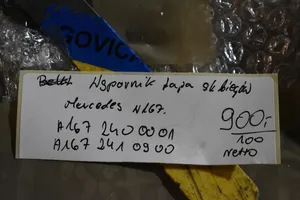 GOVICA
Wspornik łapa skrzyni
Mercedes W167.
A167 240 00 01
A167 241 09 00
900,-
100
netto